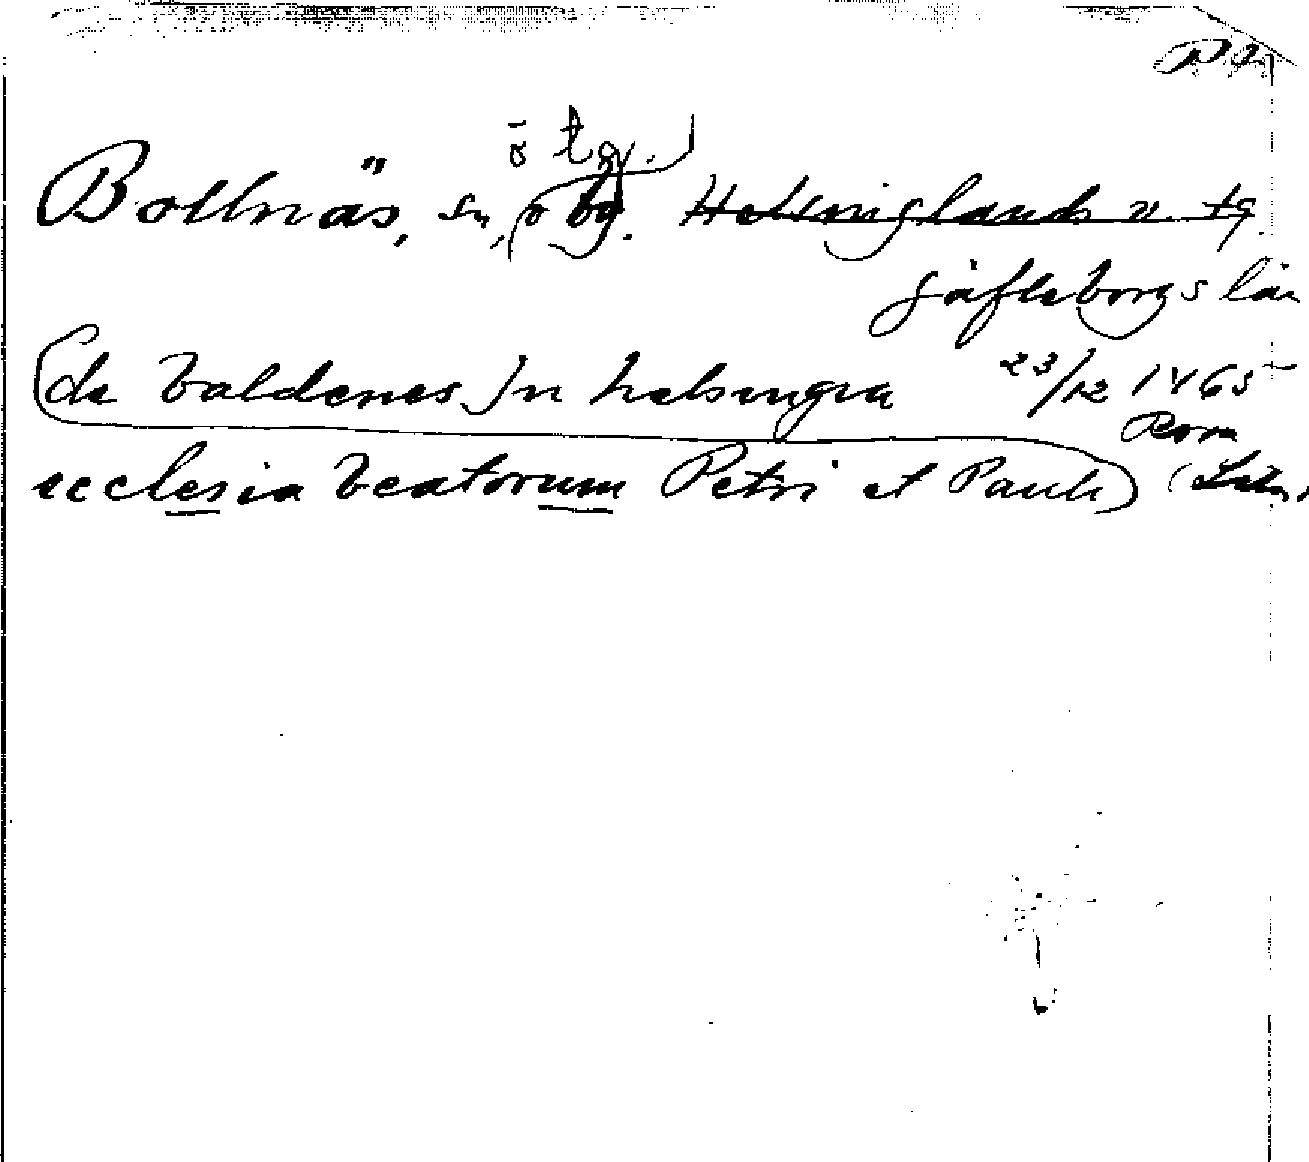 Bollnäs, sn, o bg. Helsinglands v. tg.
o tg.
Gäfleborgs län
de baldenes in helsingia 23/12 1465
Rom
ecclesia beatorum Petri et Pauli